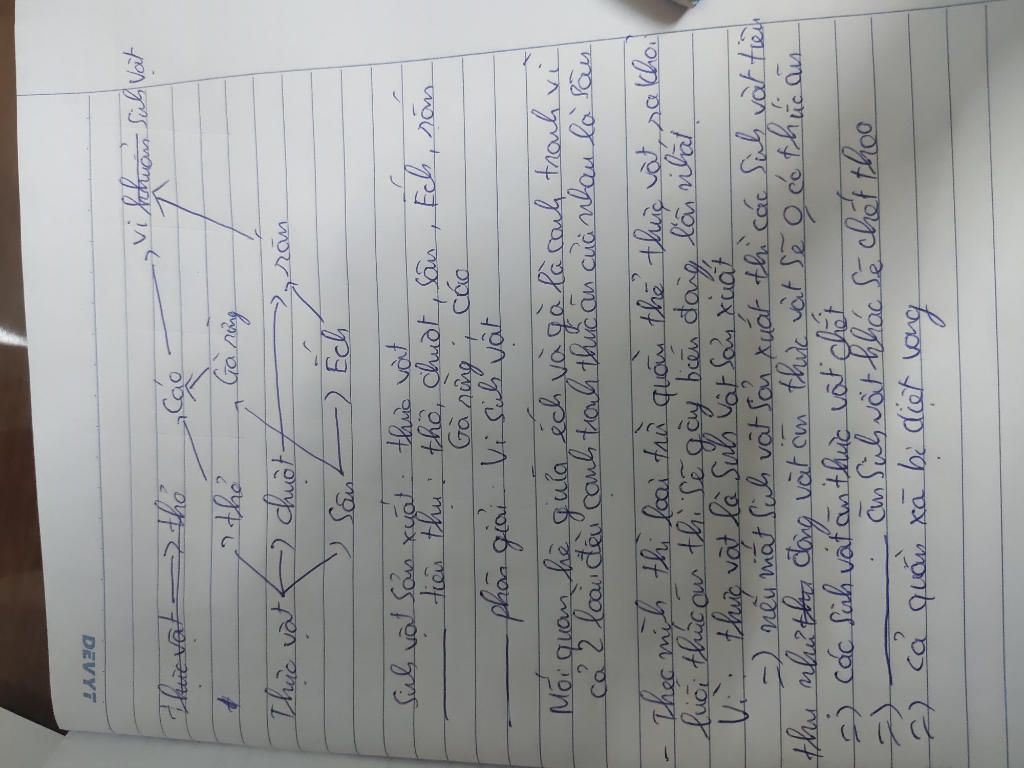 DEVYT
Thực vật → thỏ → Cáo → vi khuẩn sinh vật
→ thỏ Gà rừng
Thực vật → chuột → rắn
→ Sâu → Ếch
Sinh vật sản xuất: thực vật
tiêu thụ: thỏ, chuột, sâu, Ếch, rắn
Gà rừng, cáo
phân giải: Vi sinh vật
Mối quan hệ giữa ếch và gà là cạnh tranh vì
cả 2 loài đều cạnh tranh thức ăn của nhau là sâu
- Theo mình thì loại trừ quần thể thực vật ra khỏi
lưới thức ăn thì sẽ gây biến động lớn nhất
Vì: thực vật là sinh vật sản xuất
=) nếu mất sinh vật sản xuất thì các sinh vật tiêu
thụ như động vật ăn thực vật sẽ 0 có thức ăn
=) các sinh vật ăn thực vật chết
=) ăn sinh vật khác sẽ chết theo
=) cả quần xã bị diệt vong